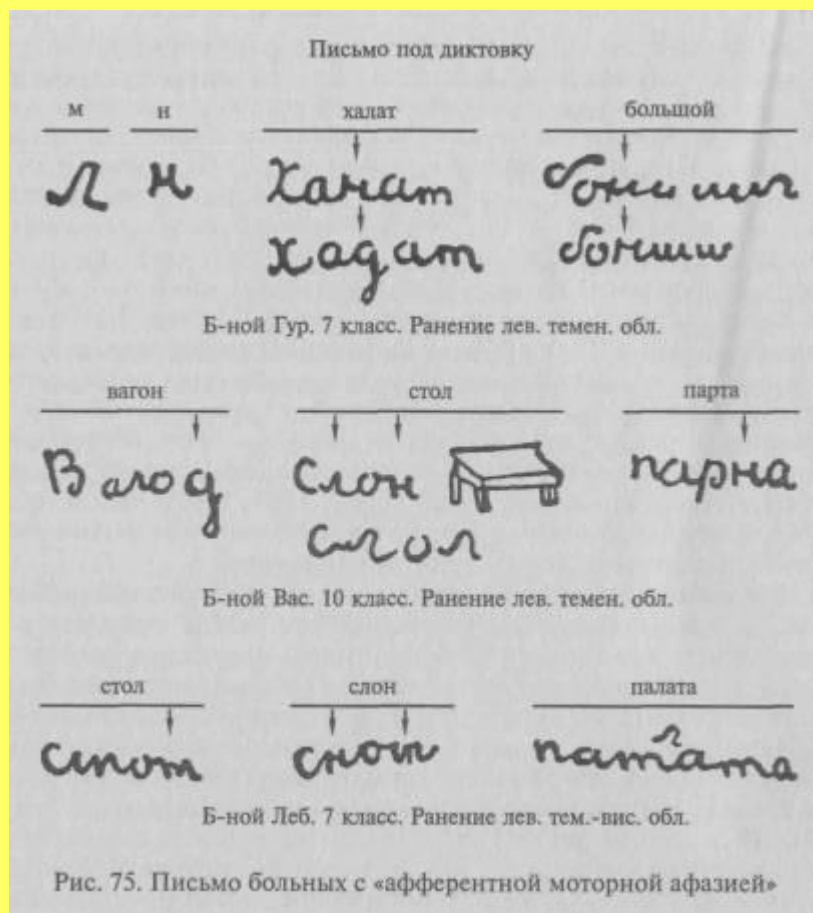 Письмо под диктовку
м н халат большой
Л н ханат
хадат боншш
Б-ной Гур. 7 класс. Ранение лев. темен. обл.
вагон стол парта
Вагод слон парна
слол
Б-ной Вас. 10 класс. Ранение лев. темен. обл.
стол слон палата
стот снот патата л
Б-ной Леб. 7 класс. Ранение лев. тем.-вис. обл.
Рис. 75. Письмо больных с «афферентной моторной афазией»